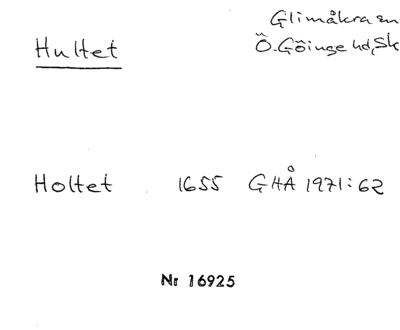 Glimåkra sn
Hultet
Ö. Göinge hd, Sk
Holtet 1655 GHÅ 1971:62
Nr 16925